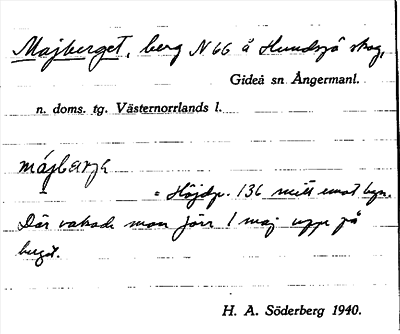 Majberget, berg N 66 å Hundsjö skog,
Gideå sn Ångermanl.
n. doms. tg. Västernorrlands l.
májbærjə
= Höjdp. 136 mitt emot byn.
Där vakade man förr 1 maj uppe på
berget.
H. A. Söderberg 1940.